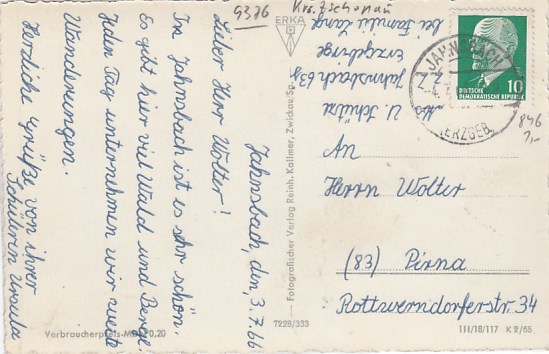 9376 Krs. Zschopau
Jahnsbach, den, 3.7.66
Lieber Herr Wolter!
In Jahnsbach ist es sehr schön.
Es gibt hier viel Wald und Berge.
Jeden Tag unternehmen wir weite
Wanderungen.
Herzliche Grüße von ihrer
Schülerin Ursula
Verbraucherpreis-MDN 0,20
ERKA
Fotografischer Verlag Reinh. Kallmer, Zwickau/Sa.
7228/333
U.
Jahnsbach 63g
Erzgebirge
bei Familie
JAHNSBACH
(ERZGEB.)
DEUTSCHE
DEMOKRATISCHE REPUBLIK
10
846
An
Herrn Wolter
(83) Pirna
Rottwerndorferstr. 34
III/18/117 K 2/65